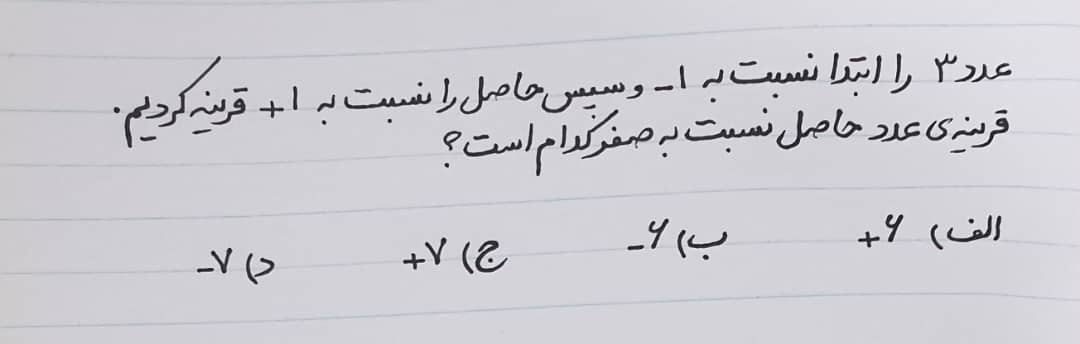 عدد ۳ را ابتدا نسبت به ۱- و سپس حاصل را نسبت به ۱+ قرینه کردیم.
قرینه‌ی عدد حاصل نسبت به صفر کدام است؟
الف) ۶+ ب) ۶- ج) ۷+ د) ۷-